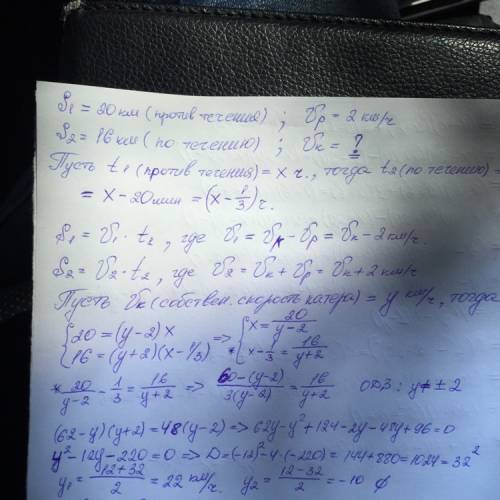 S₁ = 20 км (против течения) ; Vр = 2 км/ч
S₂ = 16 км (по течению) ; Vк = ?
Пусть t₁ (против течения) = x ч., тогда t₂ (по течению) =
= x - 20 мин = (x - 1/3) ч.
S₁ = V₁ · t₂, где V₁ = Vк - Vр = Vк - 2 км/ч.
S₂ = V₂ · t₂, где V₂ = Vк + Vр = Vк + 2 км/ч
Пусть Vк (собствен. скорость катера) = y км/ч, тогда
{20 = (y-2)x => {x = 20/(y-2)
{16 = (y+2)(x-1/3) * {x - 1/3 = 16/(y+2)
* 20/(y-2) - 1/3 = 16/(y+2) => (60-(y-2))/(3(y-2)) = 16/(y+2) ОДЗ: y ≠ ±2
(62-y)(y+2) = 48(y-2) => 62y - y² + 124 - 2y - 48y + 96 = 0
y² - 12y - 220 = 0 => D = (-12)² - 4·(-220) = 144 + 880 = 1024 = 32²
y₁ = (12+32)/2 = 22 км/ч. y₂ = (12-32)/2 = -10 ∅